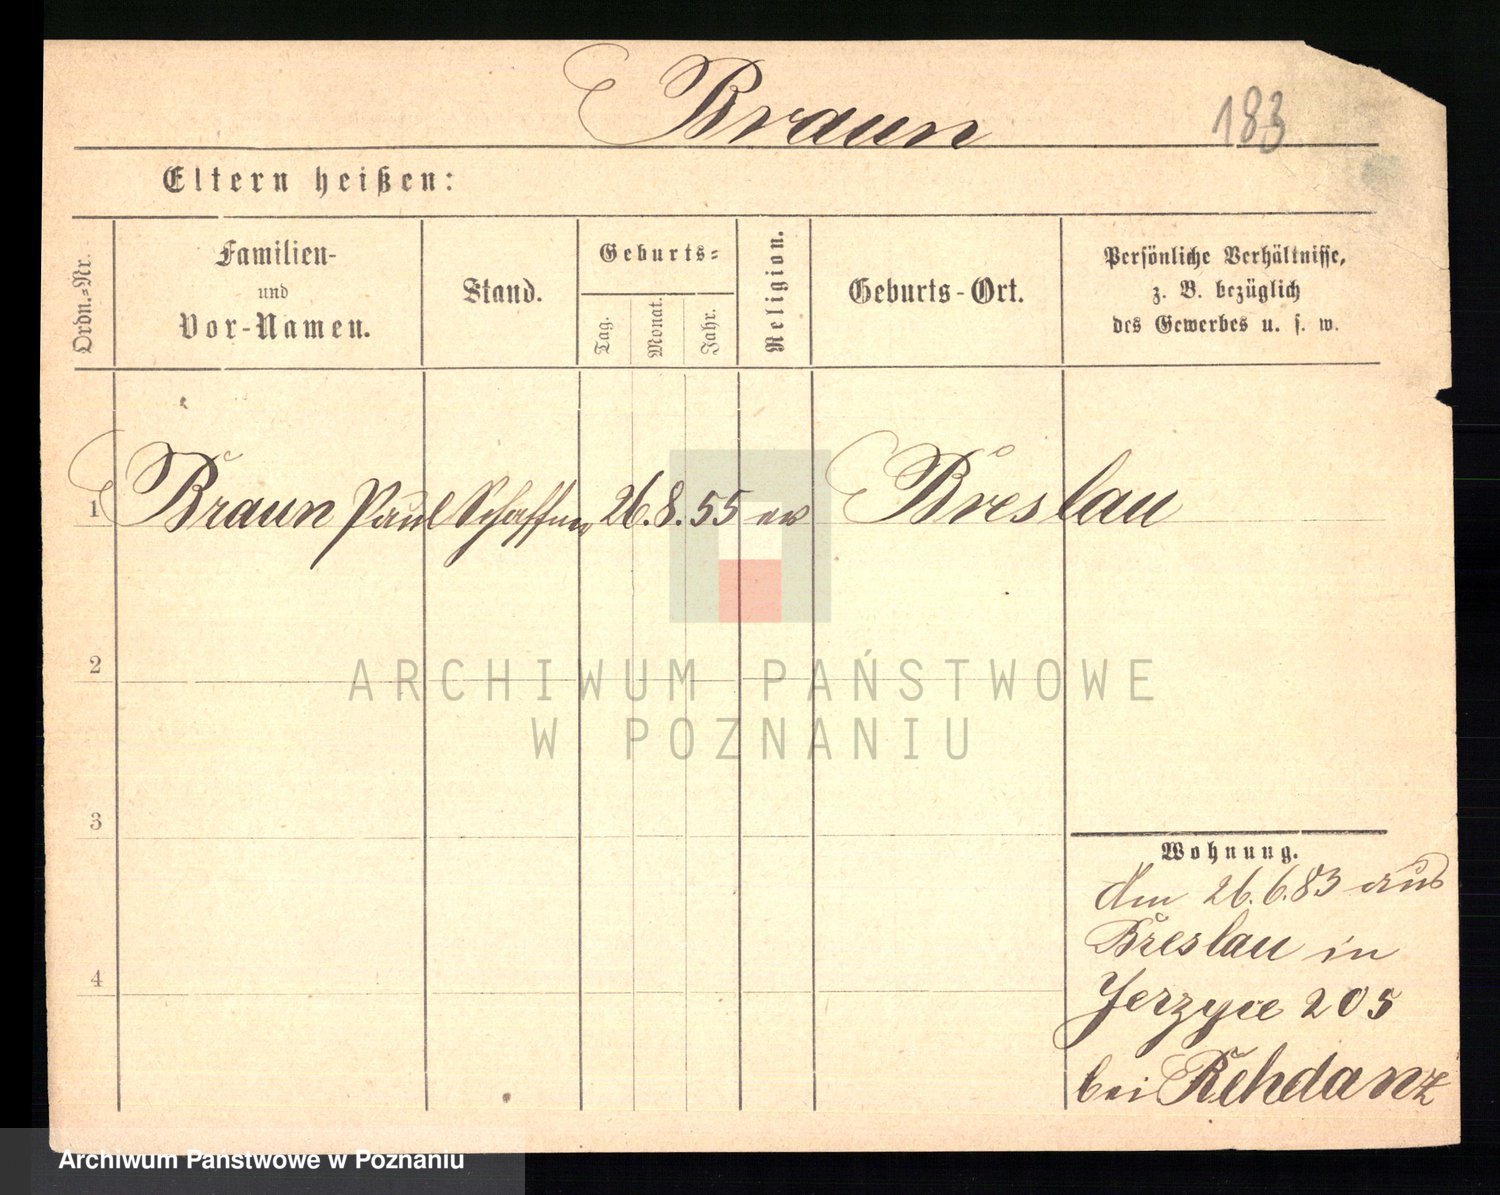 Braun
183
Eltern heißen:
Ordn.-Nr.
Familien-
und
Vor-Namen.
Stand.
Geburts-
Tag.
Monat.
Jahr.
Religion.
Geburts-Ort.
Persönliche Verhältnisse,
z. B. bezüglich
des Gewerbes u. s. w.
1 Braun Paul Schaffner 26. 8. 55 ev Breslau
2
3
4
Wohnung.
Am 26.6.83 aus
Breslau in
Jerzyce 205
bei Rehdanz
ARCHIWUM PAŃSTWOWE
W POZNANIU
Archiwum Państwowe w Poznaniu